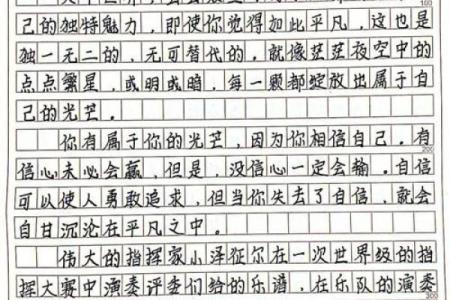 100
己的独特魅力,即使你觉得如此平凡,这也是
独一无二的,无可替代的。就像茫茫夜空中的
点点繁星,或明或暗,每一颗都绽放出属于自
己的光芒。
你有属于你的光芒,因为你相信自己。有
200
信心未必会赢,但是,没信心一定会输。自信
可以使人勇敢追求,但当你失去了自信,就会
自甘沉沦在平凡之中。
伟大的指挥家小泽征尔在一次世界级的指
挥大赛中演奏评委们给的乐谱,在乐队的演奏
300